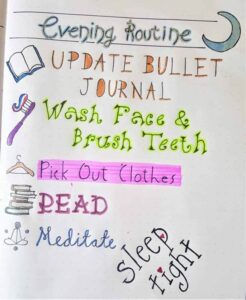 Evening Routine
UPDATE BULLET
JOURNAL
Wash Face &
Brush Teeth
Pick Out Clothes
READ
Meditate
sleep
tight